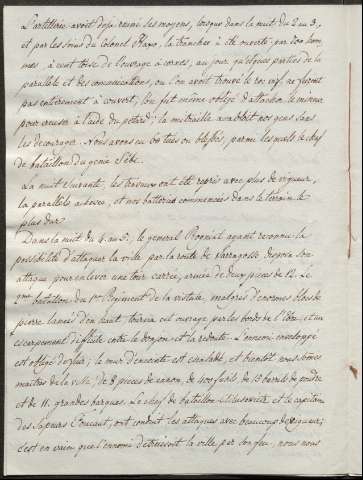 L'artillerie avoit deja réuni ses moyens, lorsque dans la nuit du 2 au 3,
et par les soins du Colonel Haxo, la tranchée a été ouverte par 500 hom
mes, à cent toise de l'ouvrage à cornes, au jour quelques parties de la
parallele et des comunications, ou l'on avoit trouvé le roc vif, ne furent
pas entierement à couvert, l'on fut même obligé d'attacher le mineur
pour creuser à l'aide du petard; la mitraille accabloit nos gens sans
les decourager. Nous avons eu 60 tués ou blessés, parmi lesquels le chef
de bataillon du genie
La nuit suivante, les travaux ont été repris avec plus de vigueur,
la parallele achevée, et nos batteries commencées dans le terrein le
plus dur.
Dans la nuit du 4 au 5, le general Rogniat ayant reconnu la
possibilité d'attaquer la ville par la route de Sarragosse disposa son
attaque pour enlever une tour carrée, armée de deux pieces de 12. Le
2me bataillon du 1er Regiment de la vistule, malgrés d'enormes blocs de
pierre lancés d'en haut, tourna cet ouvrage par les bords de l'Ebre, et un
escarpement difficile entre le donjon et la redoute. L'ennemi enveloppé
est obligé de fuir; le mur d'enceinte est escaladé, et bientôt nous sommes
maitres de la ville, de 8 pieces de canon, de 200 fusils de 15 barils de poudre
et de 11. grandes barques. Le chef de bataillon et le capitaine
des Sapeurs Foucaut, ont conduit les attaques avec beaucoup de vigueur;
C'est en vain que l'ennemi détruisoit la ville par son feu, nous nous